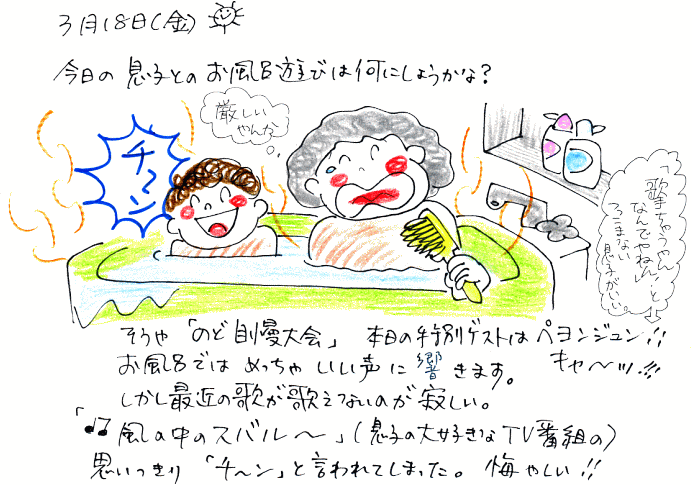 3月18日(金)
今日の息子とのお風呂遊びは何にしょうかな?
厳しい
やんか
チ〜ン
「歌手ちゃうやん、
なんでやねん」と
つっこまない
息子がいい。
そうや「のど自慢大会」 本日の特別ゲストはペヨンジュン!!
お風呂ではめっちゃいい声に響きます。 キャ〜ッ!!!
しかし最近の歌が歌えないのが寂しい。
「♪♫風の中のスバル〜」(息子の大好きなTV番組の)
思いっきり「チ〜ン」と言われてしまった。悔やしい!!